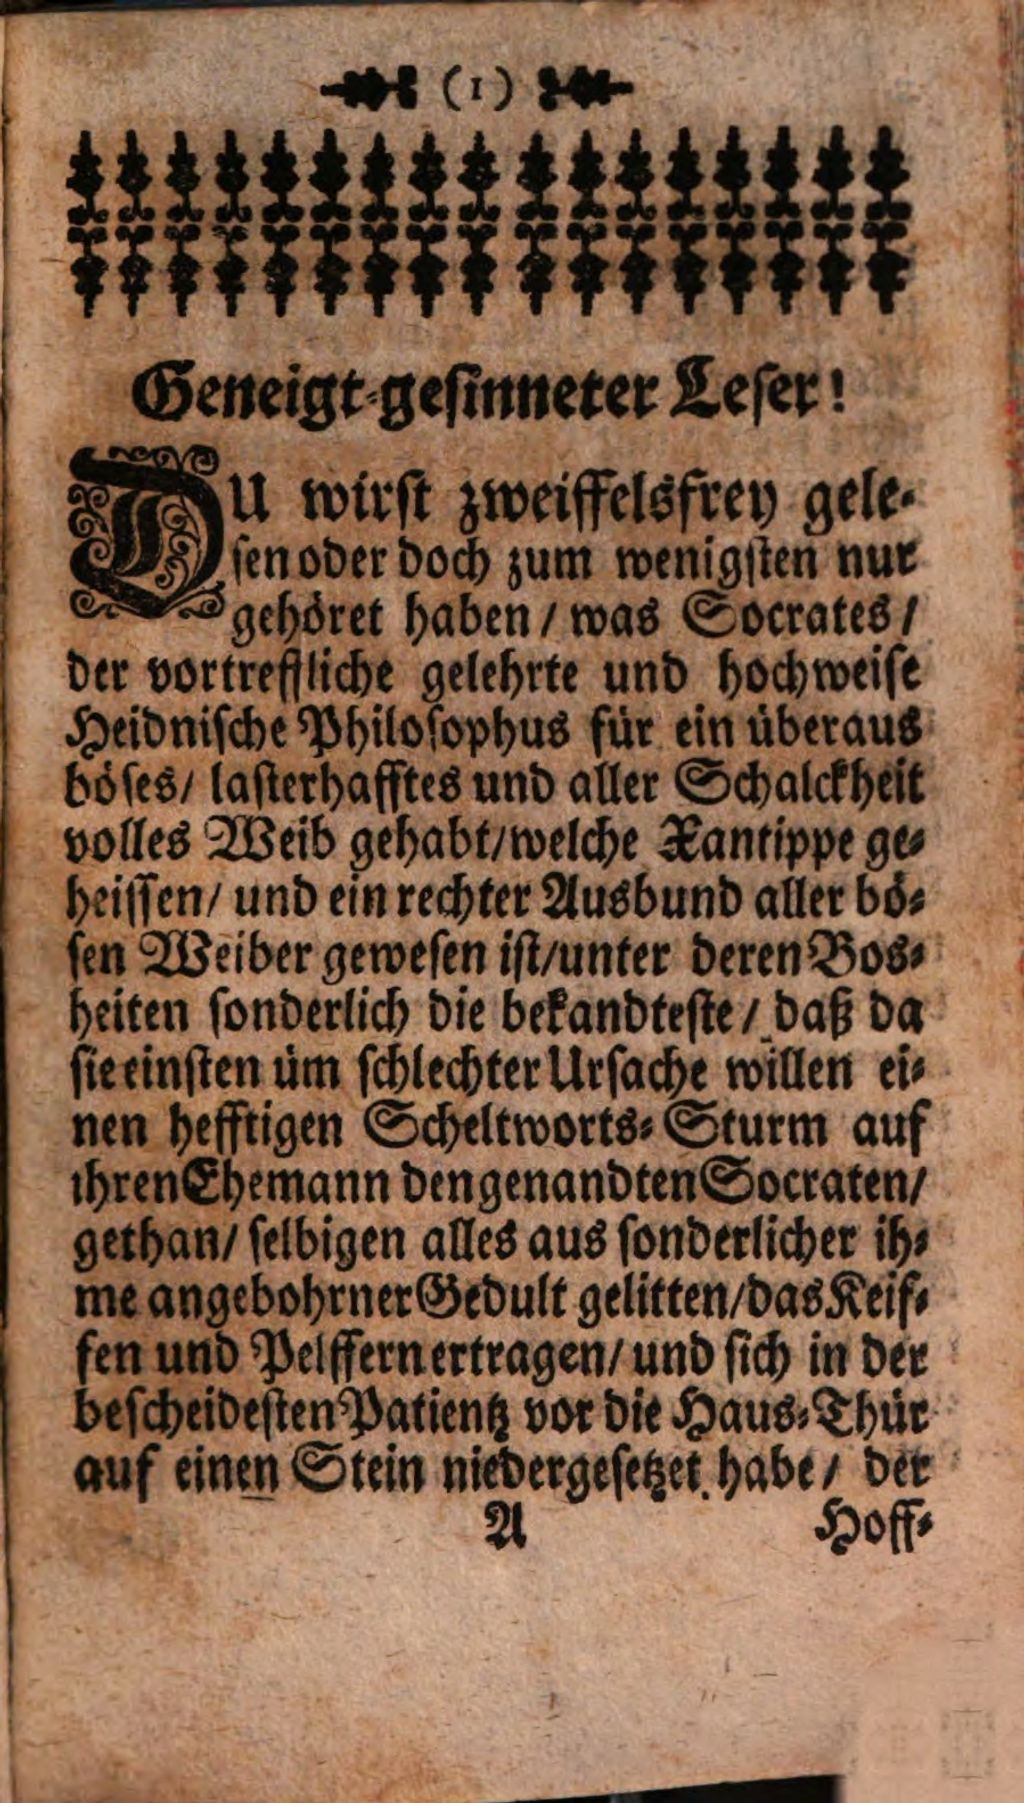 (1)
Geneigt-gesinneter Leser!
DU wirst zweiffelsfrey gele-
sen oder doch zum wenigsten nur
gehöret haben / was Socrates /
der vortreffliche gelehrte und hochweise
Heidnische Philosophus für ein überaus
böses/ lasterhafftes und aller Schalckheit
volles Weib gehabt/welche Xantippe ge-
heissen/ und ein rechter Ausbund aller bö-
sen Weiber gewesen ist/unter deren Bos-
heiten sonderlich die bekandteste / daß da
sie einsten üm schlechter Ursache willen ei-
nen hefftigen Scheltworts-Sturm auf
ihren Ehemann den genandten Socraten/
gethan/ selbigen alles aus sonderlicher ih-
me angebohrner Gedult gelitten/das Keif-
fen und Pelffern ertragen/ und sich in der
bescheidesten Patientz vor die Haus-Thür
auf einen Stein niedergesetzet habe / der
A Hoff-